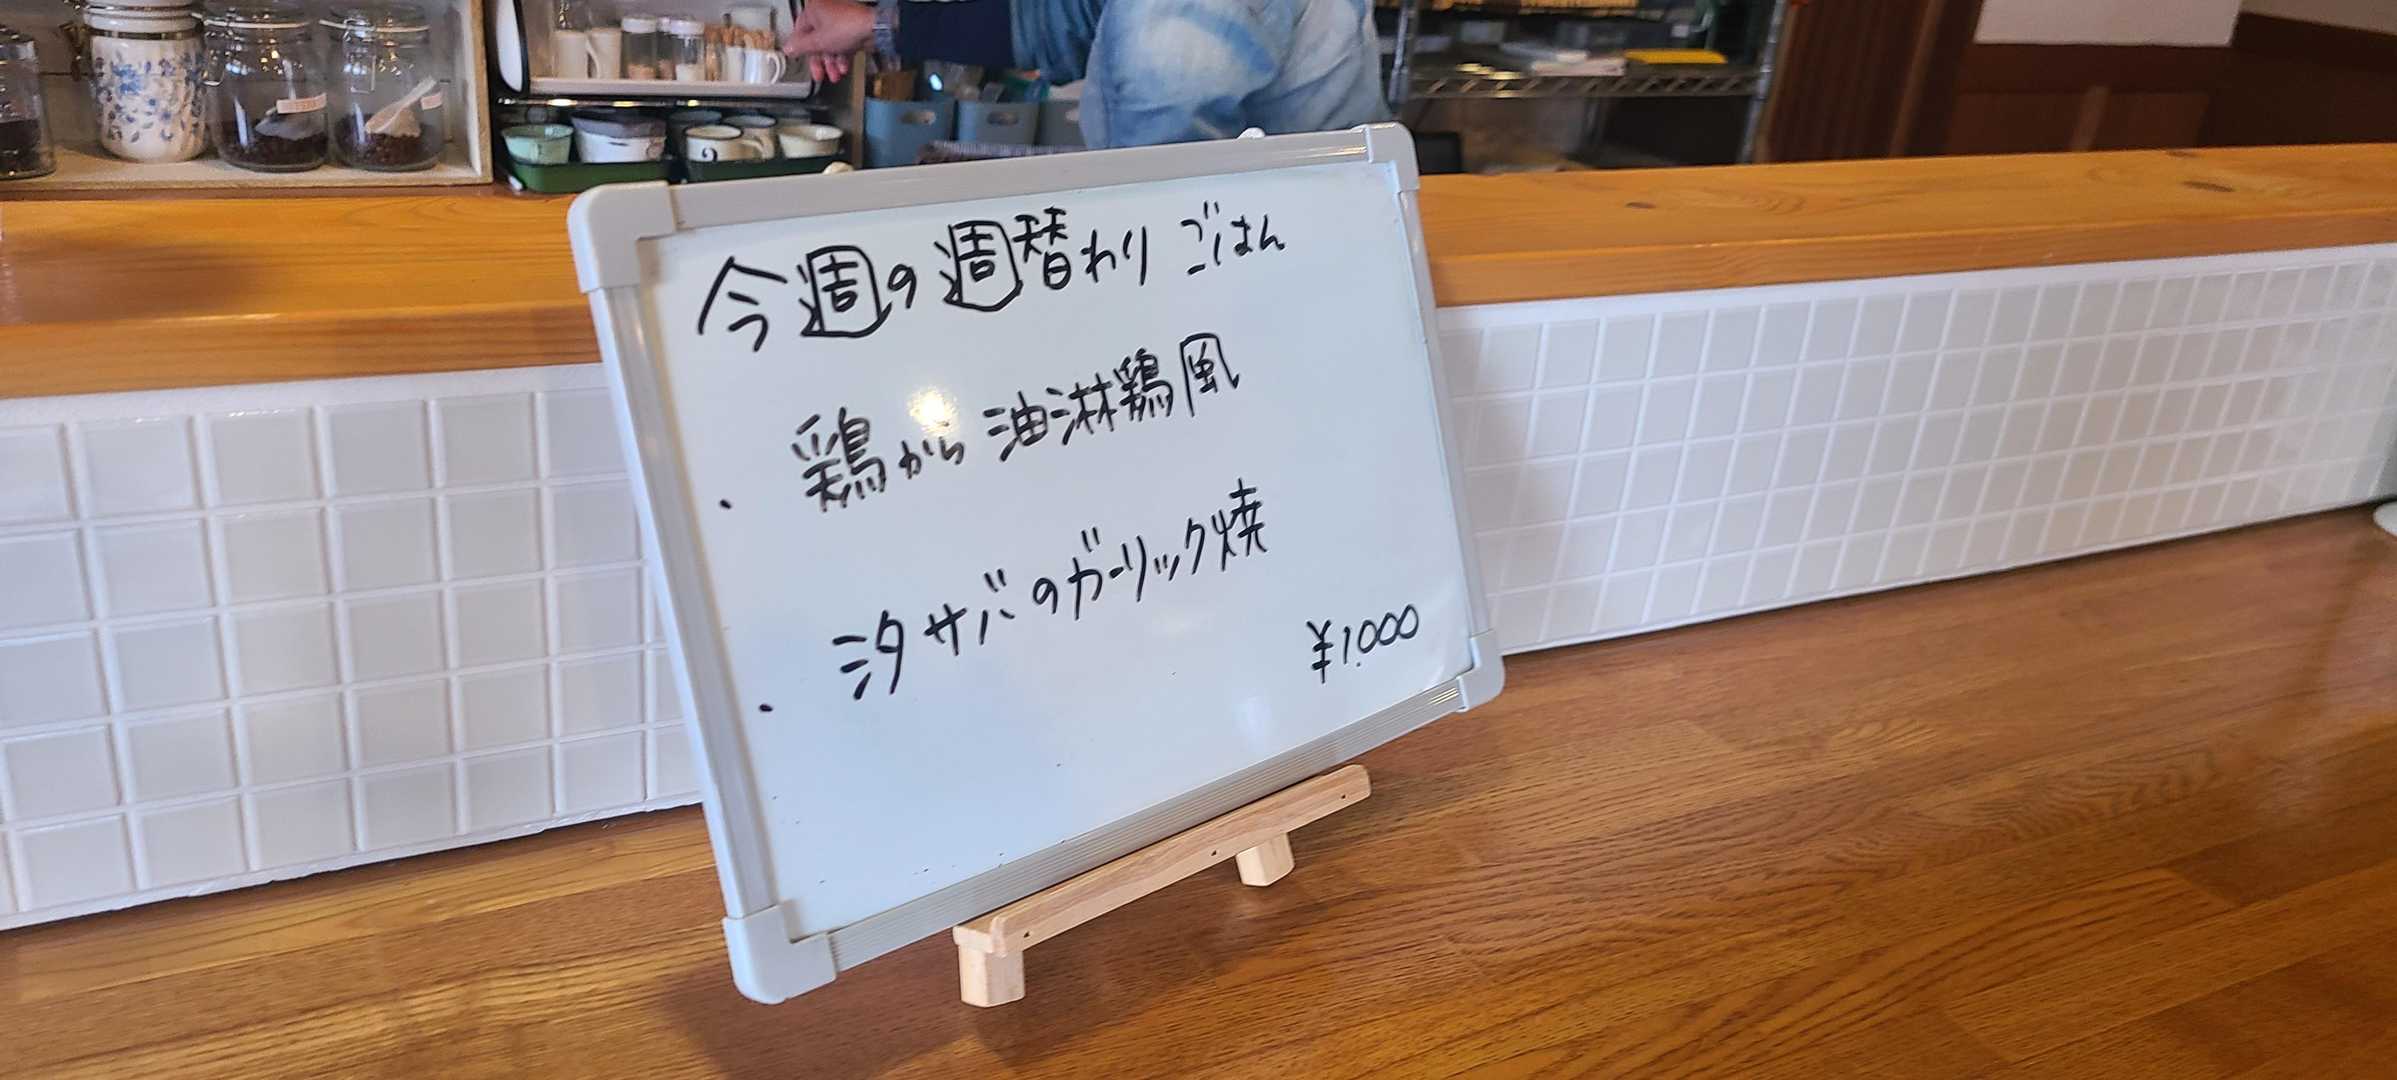 今週の週替わりごはん
・鶏から油淋鶏風
・汐サバのガーリック焼
¥1.000